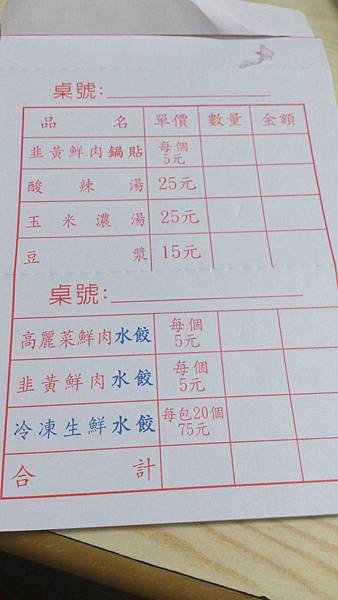 桌號:
品名 單價 數量 金額
韭黃鮮肉鍋貼 每個5元
酸辣湯 25元
玉米濃湯 25元
豆漿 15元
桌號:
高麗菜鮮肉水餃 每個5元
韭黃鮮肉水餃 每個5元
冷凍生鮮水餃 每包20個75元
合計